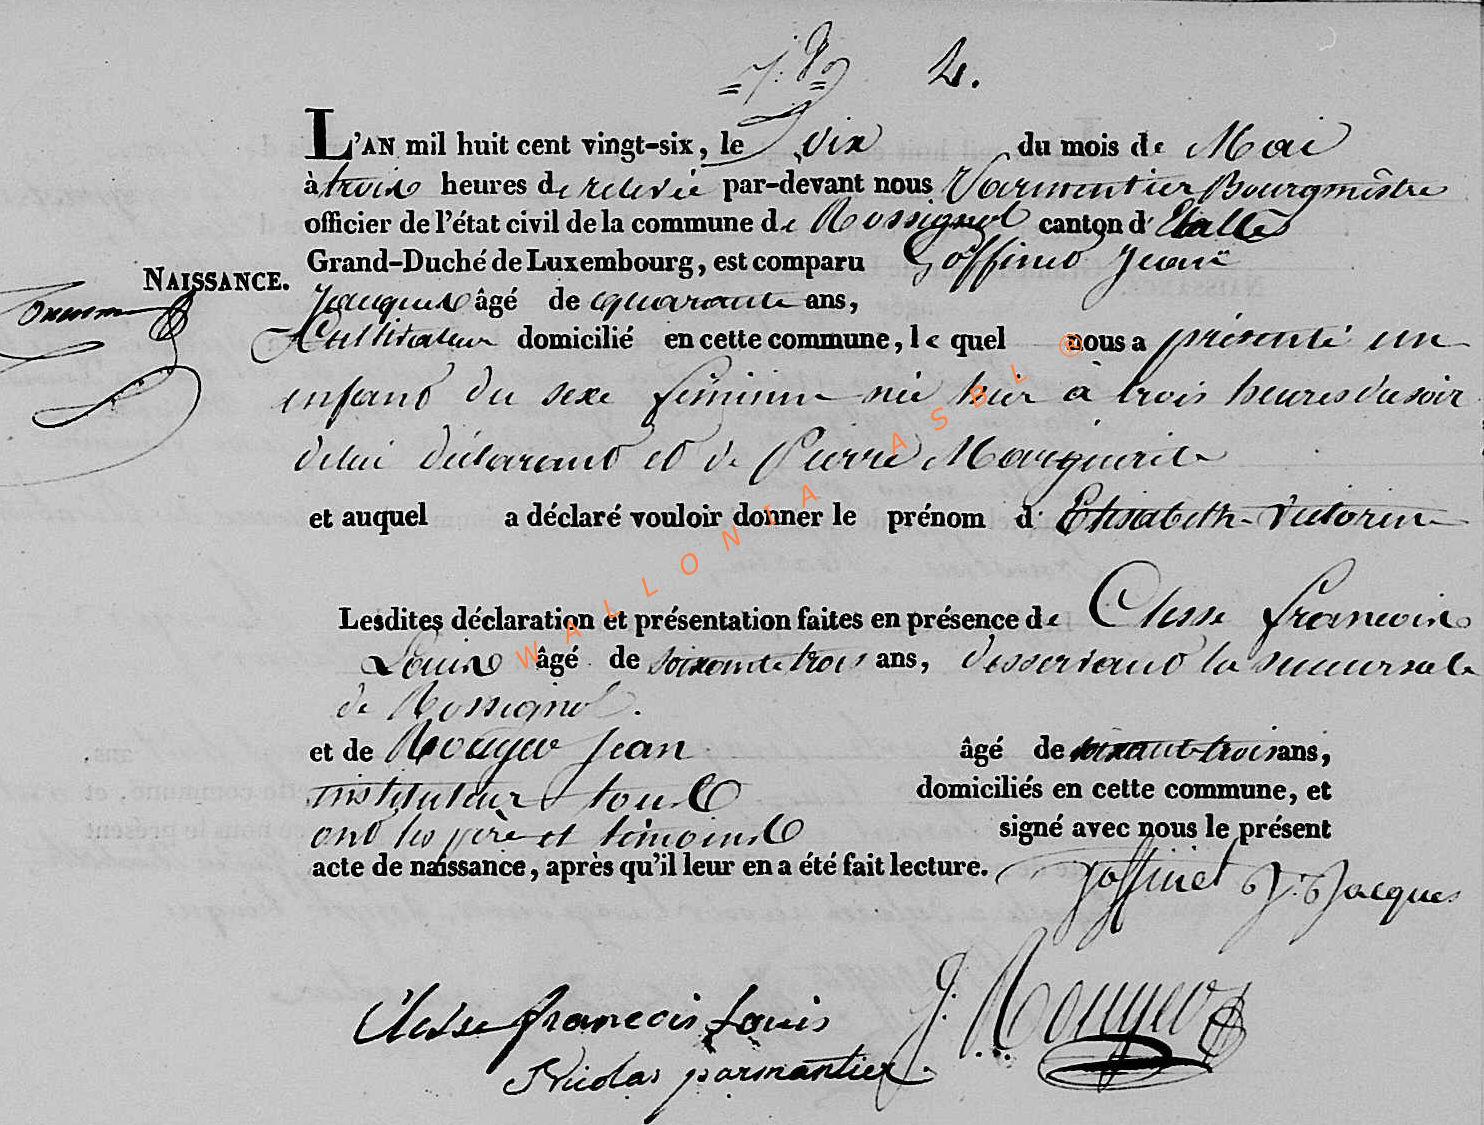 4.
L'AN mil huit cent vingt-six, le dix du mois de Mai
à trois heures de relevée par-devant nous Parmentier Bourgmêstre
officier de l'état civil de la commune de Rossignol canton d'Etalle
Grand-Duché de Luxembourg, est comparu Goffinet Jean
NAISSANCE.
Jacques âgé de quarante ans,
Cultivateur domicilié en cette commune, le quel nous a présenté un
enfant du sexe féminin née hier à trois heures du soir
de lui déclarant et de Pierre Marguerite
et auquel a déclaré vouloir donner le prénom d'Elisabeth-Victorine
Lesdites déclaration et présentation faites en présence de Clesse francois
Louis âgé de soixante trois ans, desservant la succursale
de Rossignol.
et de Rougeo Jean âgé de soixante-trois ans,
instituteur tous domiciliés en cette commune, et
ont les père et témoins signé avec nous le présent
acte de naissance, après qu'il leur en a été fait lecture. Goffinet J: Jacques
Clesse francois Louis J. Rougeo
Nicolas parmantier.
WALLONIA ASBL ®